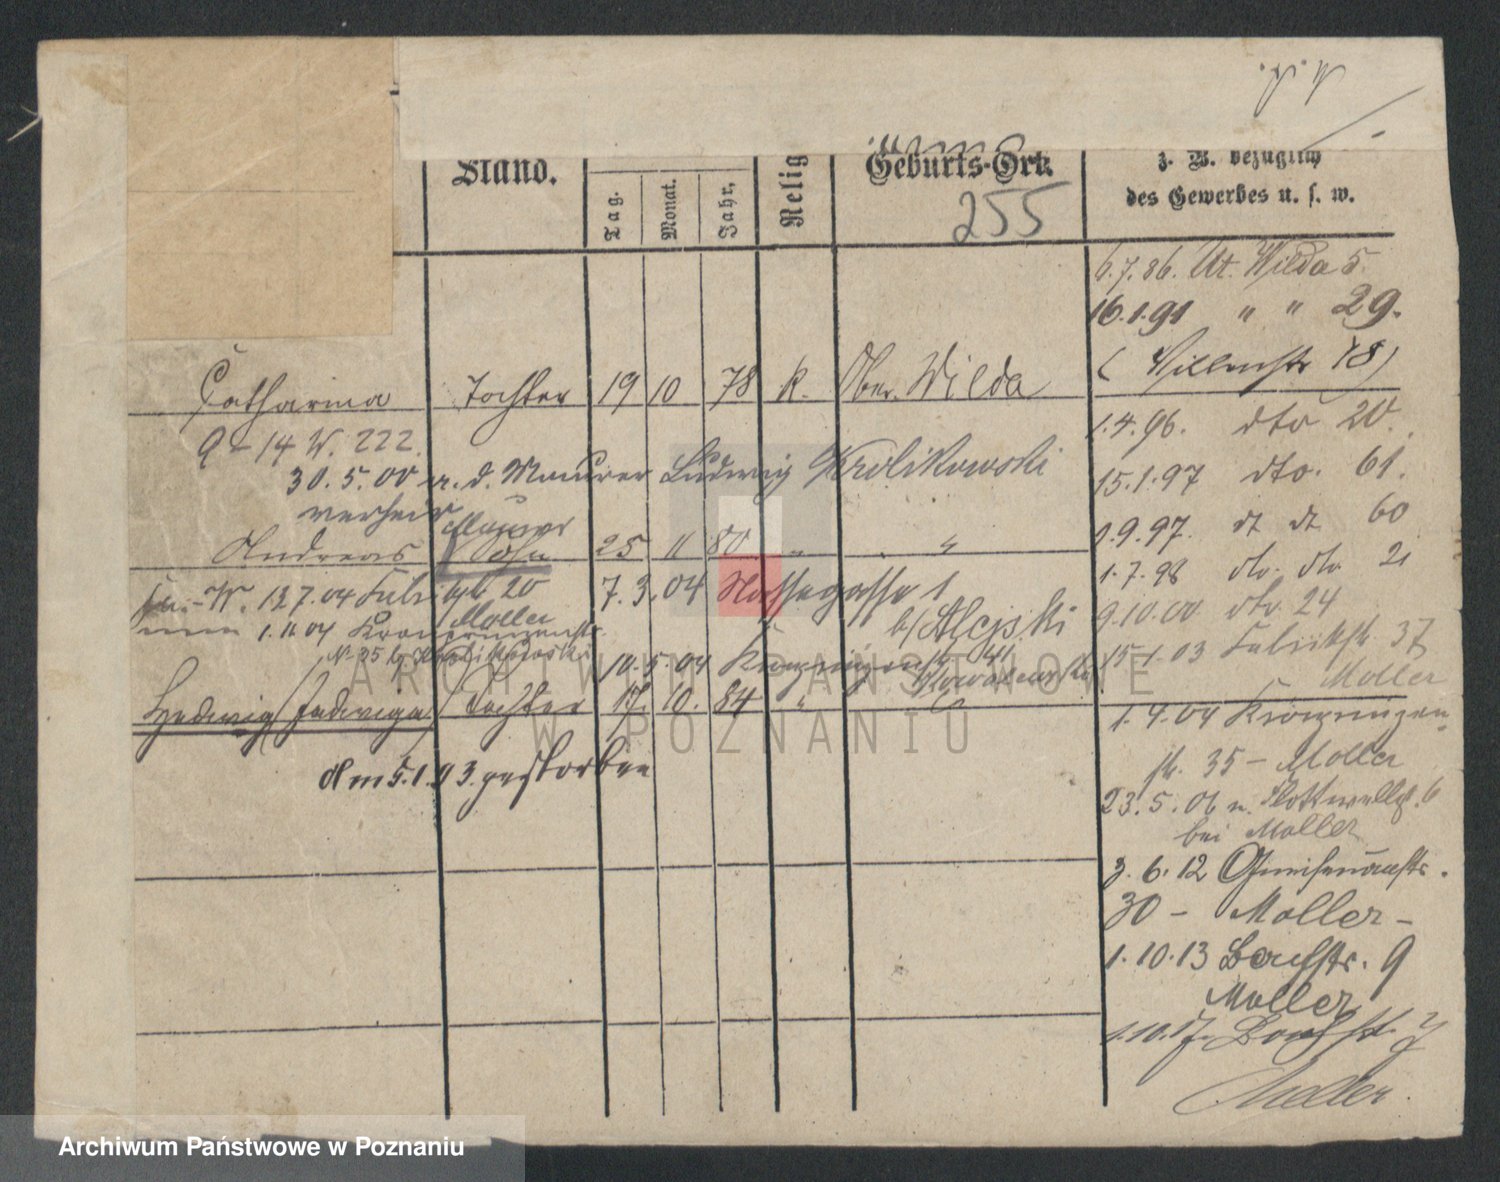 Stand.
Tag.
Monat.
Jahr.
Relig
Geburts-Ort.
z. B. bezüglich
des Gewerbes u. s. w.
255
6.7.86. Ut. Wilda 5.
16.1.91 " " 29.
( 18)
Catharina Tochter 19 10 78 k. Ober-Wilda
1.4.96. dto 20.
9-14 W. 222.
30.5.00 m. d. Maurer Ludwig Krolikowski
verheir
15.1.97 dto. 61.
Maurer
Andreas Sohn 25 11 80 " "
1.9.97. dt dt 60
1.7.98 dto. dto. 21
W. 12.7.04 20 7.3.04 Nassegasse 1
b/
Moller
9.10.00 dto 24
1.11.04 Kronprinzenstr.
No 35 b. Krolikowski 10.5.04 Kronprinzenstr. 41
Kowalewski
15.1.03 Fabrikstr. 37
Moller
Hedwig (Jadwiga) Tochter 17. 10. 84 "
1.4.04 Kronprinzen-
am 5.1.03. gestorben
str. 35 - Moller
23.5.06 n. Flottwellstr. 6
bei Moller
3.6.12 Gneisenaustr.
30 - Moller -
1.10.13 9
Moller
1.10.17.
Moller.
ARCHIWUM PAŃSTWOWE
W POZNANIU
Archiwum Państwowe w Poznaniu